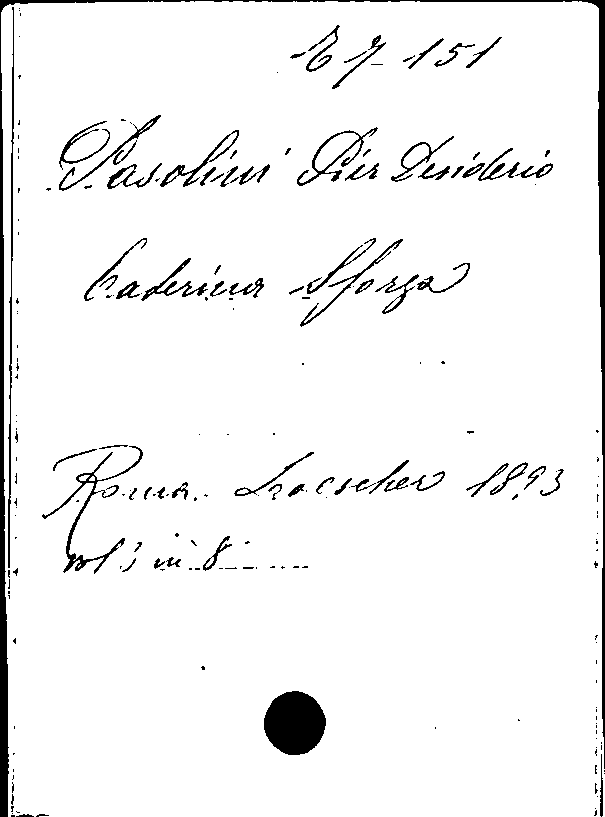 E 7 151
Pasolini Pier Desiderio
Caterina Sforza
Roma. Loescher 1893
vol 3 in 8